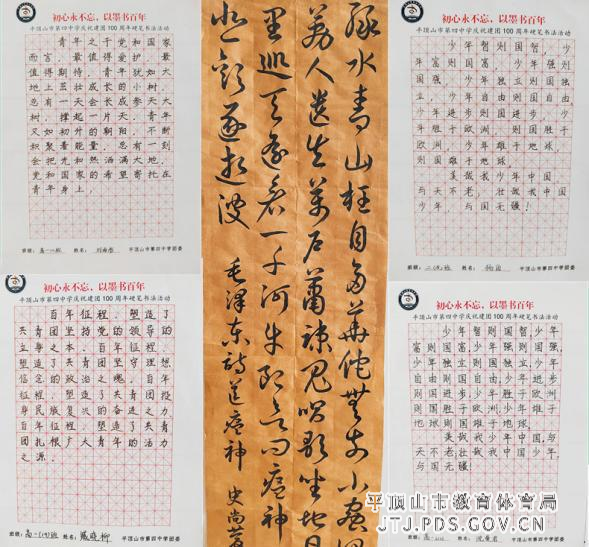 初心永不忘，以墨书百年
平顶山市第四中学庆祝建团100周年硬笔书法活动
青年之于党和国家
而言，最值得爱护、最
值得期待。青年犹如大
地上茁壮成长的小树，
总有一天会长成参天大
树，撑起一片天。青年
又如初升的朝阳，不断
积聚着能量，总有一刻
会把光和热洒满大地。
党和国家的希望寄托在
青年身上。
班级：
姓名：
平顶山市第四中学团委
初心永不忘，以墨书百年
平顶山市第四中学庆祝建团100周年硬笔书法活动
百年征程，塑造了
共青团坚持党的领导的
立身之本；百年征程，
塑造了共青团坚守理想
信念的政治之魂；百年
征程，塑造了共青团投
身民族复兴的奋进之力；
百年征程，塑造了共青
团扎根广大青年的活力
之源。
班级：
姓名：
平顶山市第四中学团委
绿水青山枉自多华佗无奈小虫何
万户萧疏鬼唱歌坐地日
巡天遥看一千河牛郎欲问瘟神
悲欢逐逝波
毛泽东诗送瘟神
初心永不忘，以墨书百年
平顶山市第四中学庆祝建团100周年硬笔书法活动
少年智则国智，少
年富则国富，少年强则
国强，少年独立则国独
立，少年自由则国自由
少年进步则国进步，少
年胜于欧洲，则国胜于
欧洲，少年雄于地球，
则国雄于地球。
美哉我少年中国，
与天不老，壮哉我中国
少年，与国无疆！
班级：
姓名：
平顶山市第四中学团委
初心永不忘，以墨书百年
平顶山市第四中学庆祝建团100周年硬笔书法活动
少年智则国智，少年
富则国富，少年强则国强，
少年独立则国独立，少年
自由则国自由，少年进步
则国进步，少年胜于欧洲
则国胜于欧洲，少年雄于
地球则国雄于地球。
美哉我少年中国，与
天不老，壮哉我中国少年，
与国无疆！
班级：
姓名：
平顶山市第四中学团委
平顶山市教育体育局
JTJ.PDS.GOV.CN